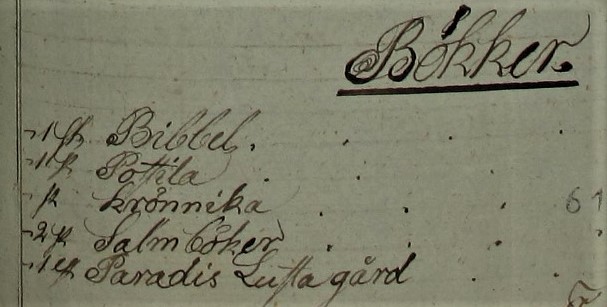 Bökker
1 st Bibbel
1 st Postila
st krönnika
2 st Salmböker
1 st Paradis Lustagård